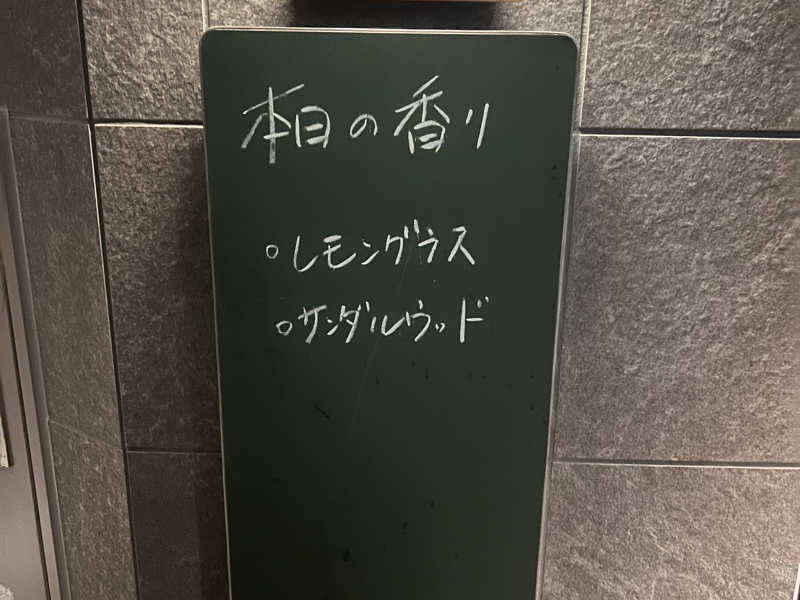 本日の香り
○レモングラス
○サンダルウッド